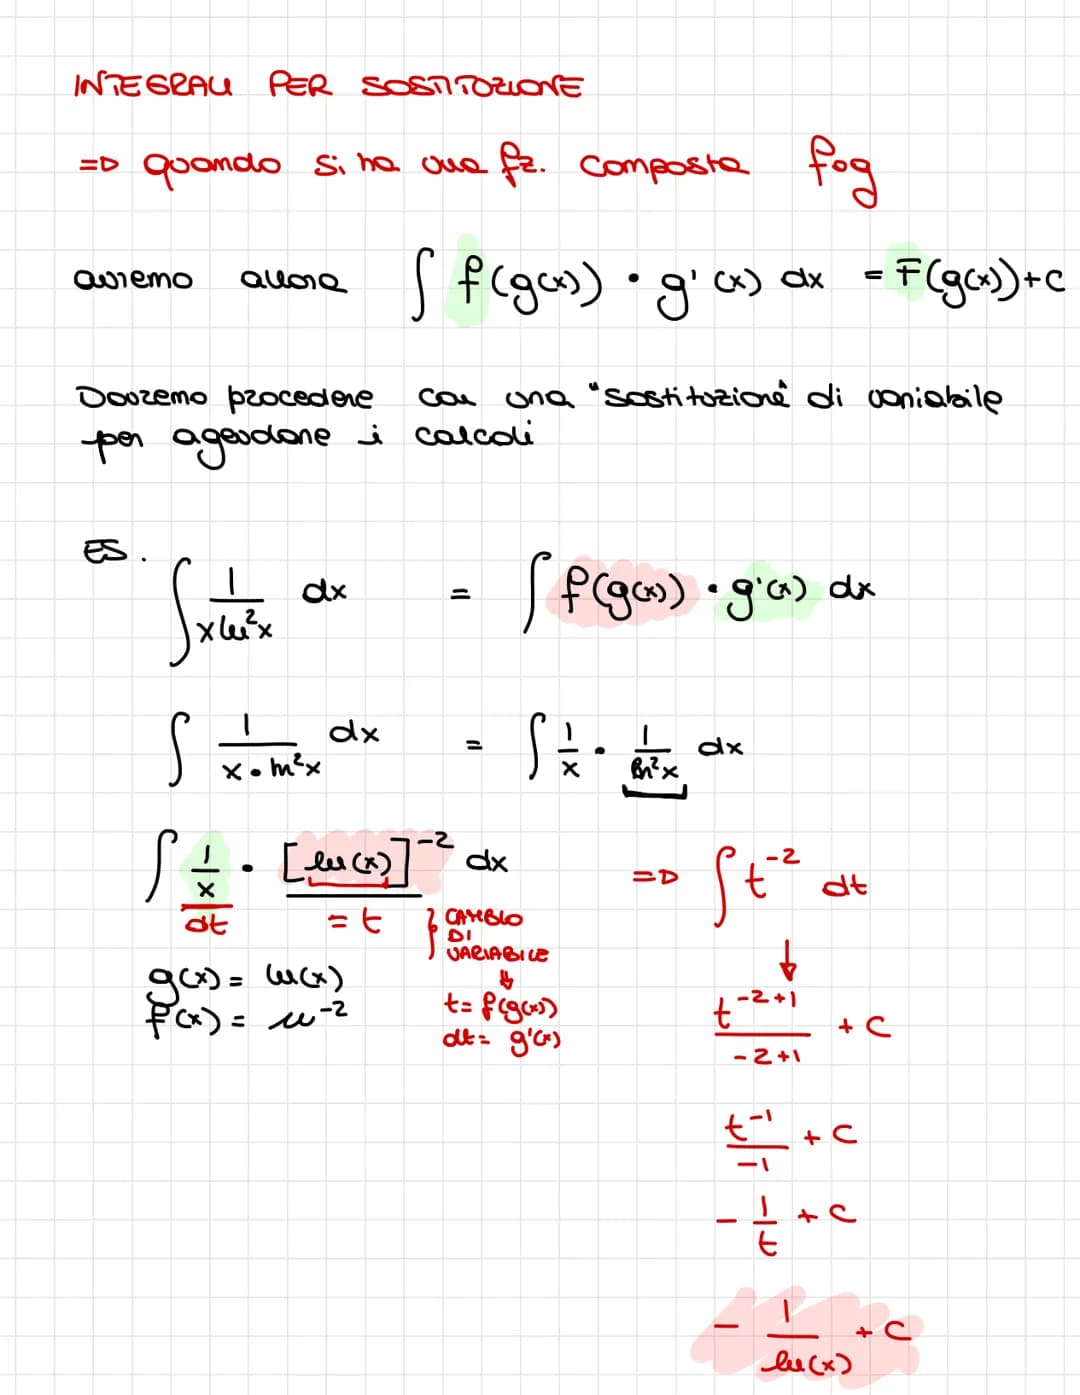 INTEGRALI PER SOSTITUZIONE
=> quando si ha una fz. composta fog
avremo allora ∫ f(g(x)) · g'(x) dx = F(g(x))+C
Dovremo procedere con una "sostituzione" di variabile
per agevolare i calcoli
ES.
∫ 1/(x ln²x) dx = ∫ f(g(x)) · g'(x) dx
∫ 1/(x · ln²x) dx = ∫ 1/x · 1/(ln²x) dx
∫ 1/x · [ln(x)]^-2 dx => ∫ t^-2 dt
dt = t } CAMBIO
DI
VARIABILE
↓
g(x) = ln(x)
f(x) = u^-2
t = f(g(x))
dt = g'(x)
↓
t^(-2+1)/(-2+1) + C
t^-1/-1 + C
- 1/t + C
- 1/ln(x) + C